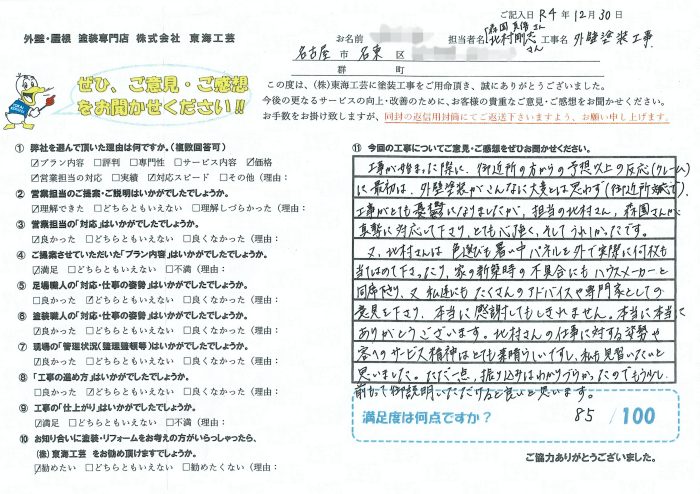 ご記入日 R4年 12月30日
外壁・屋根 塗装専門店 株式会社 東海工芸
お名前
担当者名 森國真悟さん 北村剛志さん 工事名 外壁塗装工事
名古屋市 名東区
郡 町
ぜひ、ご意見・ご感想
をお聞かせください!!
この度は、(株)東海工芸に塗装工事をご用命頂き、誠にありがとうございました。
今後の更なるサービスの向上・改善のために、お客様の貴重なご意見・ご感想をお聞かせください。
お手数をお掛け致しますが、同封の返信用封筒にてご返送下さいますよう、お願い申し上げます。
① 弊社を選んで頂いた理由は何ですか。(複数回答可)
☑プラン内容 □評判 □専門性 □サービス内容 ☑価格
☑営業担当の対応 □実績 ☑対応スピード □その他(理由:
② 営業担当のご提案・ご説明はいかがでしたでしょうか。
☑理解できた □どちらともいえない □理解しづらかった(理由:
③ 営業担当の「対応」はいかがでしたでしょうか。
☑良かった □どちらともいえない □良くなかった(理由:
④ ご提案させていただいた「プラン内容」はいかがでしたでしょうか。
☑満足 □どちらともいえない □不満(理由:
⑤ 足場職人の「対応・仕事の姿勢」はいかがでしたでしょうか。
□良かった ☑どちらともいえない □良くなかった(理由:
⑥ 塗装職人の「対応・仕事の姿勢」はいかがでしたでしょうか。
☑良かった □どちらともいえない □良くなかった(理由:
⑦ 現場の「管理状況(整理整頓等)」はいかがでしたでしょうか。
☑良かった □どちらともいえない □良くなかった(理由:
⑧ 「工事の進め方」はいかがでしたでしょうか。
☑良かった □どちらともいえない □良くなかった(理由:
⑨ 工事の「仕上がり」はいかがでしたでしょうか。
☑満足 □どちらともいえない □不満(理由:
⑩ お知り合いに塗装・リフォームをお考えの方がいらっしゃったら、
(株)東海工芸 をお勧め頂けますでしょうか。
☑勧めたい □どちらともいえない □勧めたくない(理由:
⑪ 今回の工事についてご意見・ご感想をぜひお聞かせください。
工事が始まった際に、御近所の方からの予想以上の反応(クレーム)
に最初は、外壁塗装がこんなに大変とは思わず(御近所
工事がとても憂鬱になりましたが、担当の北村さん、森國さんが
真摯に対応して下さり、とても心強く、そしてうれしかったです。
又、北村さんは 色選びも暑い中パネルを外で実際に何枚も
当てはめて下さったり、家の新築時の不具合にもハウスメーカーと
同席下さり、又 私達にもたくさんのアドバイスや専門家としての
意見を下さり、本当に感謝してもしきれません。本当に本当に
ありがとうございます。北村さんの仕事に対する姿勢や
客へのサービス精神はとても素晴らしいですし、私も見習いたいと
思いました。ただ一点、振り込みはわかりづらかったのでもう少し
前もって御説明いただけると良いと思います。
満足度は何点ですか? 85 /100
ご協力ありがとうございました。